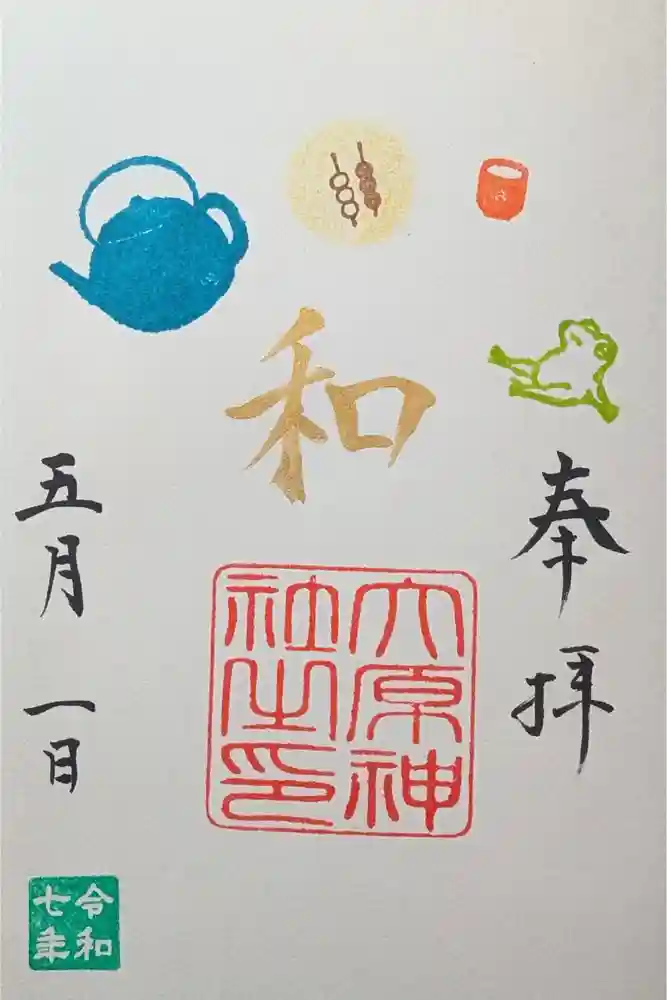 奉拝
和
大原神
社之印
五月一日
令和
七年